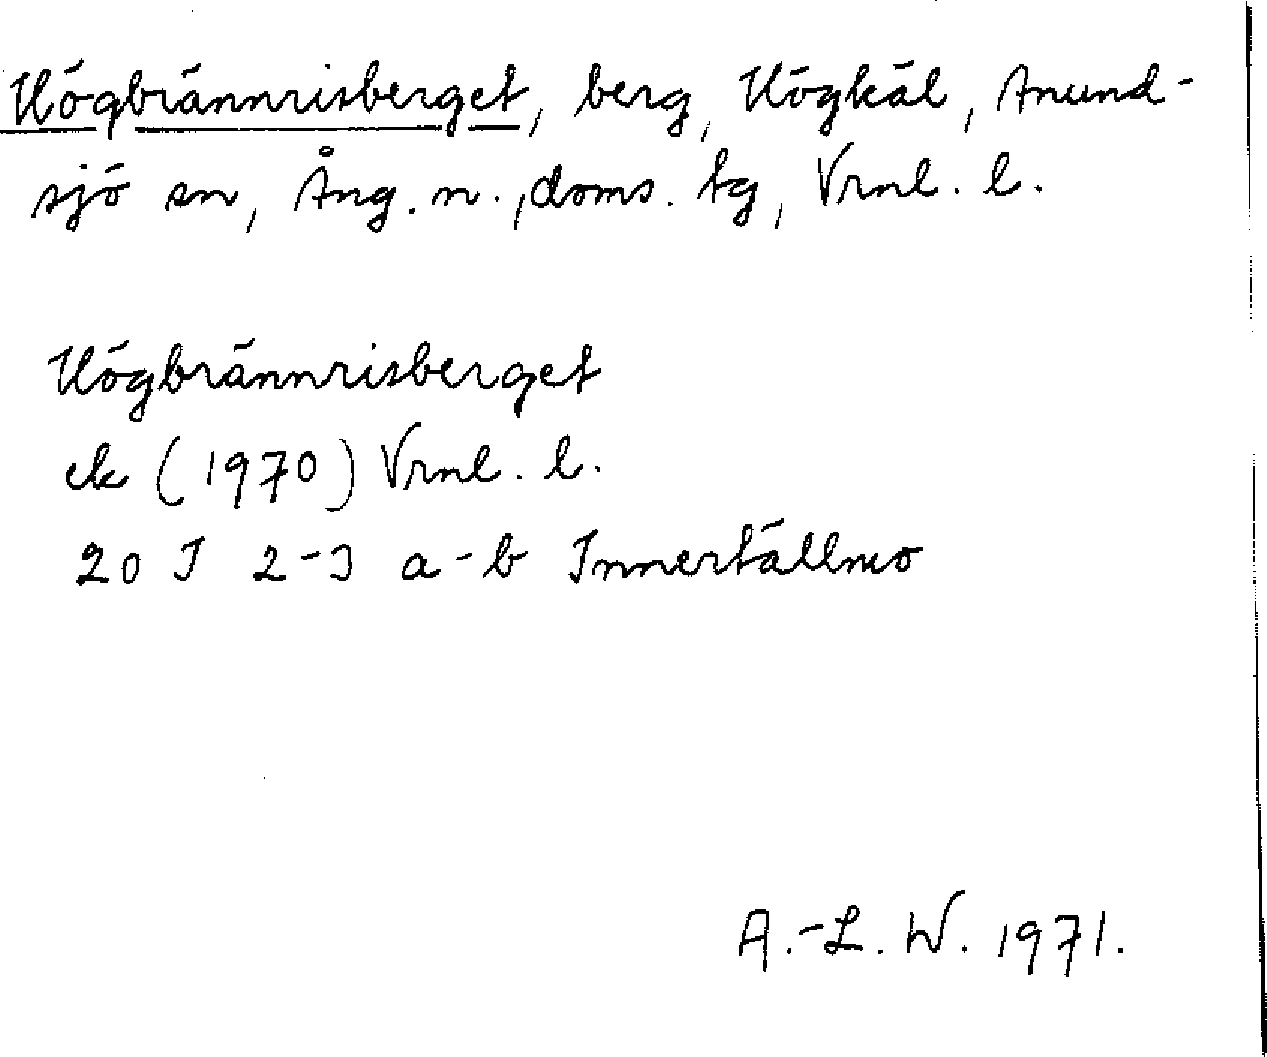 Högbrännrisberget, berg, Högkäl, Anund-
sjö sn, Ång. n., doms. tg, Vrnl. l.
Högbrännrisberget
ek (1970) Vrnl. l.
20 J 2-3 a-b Innertällmo
A.-L. W. 1971.